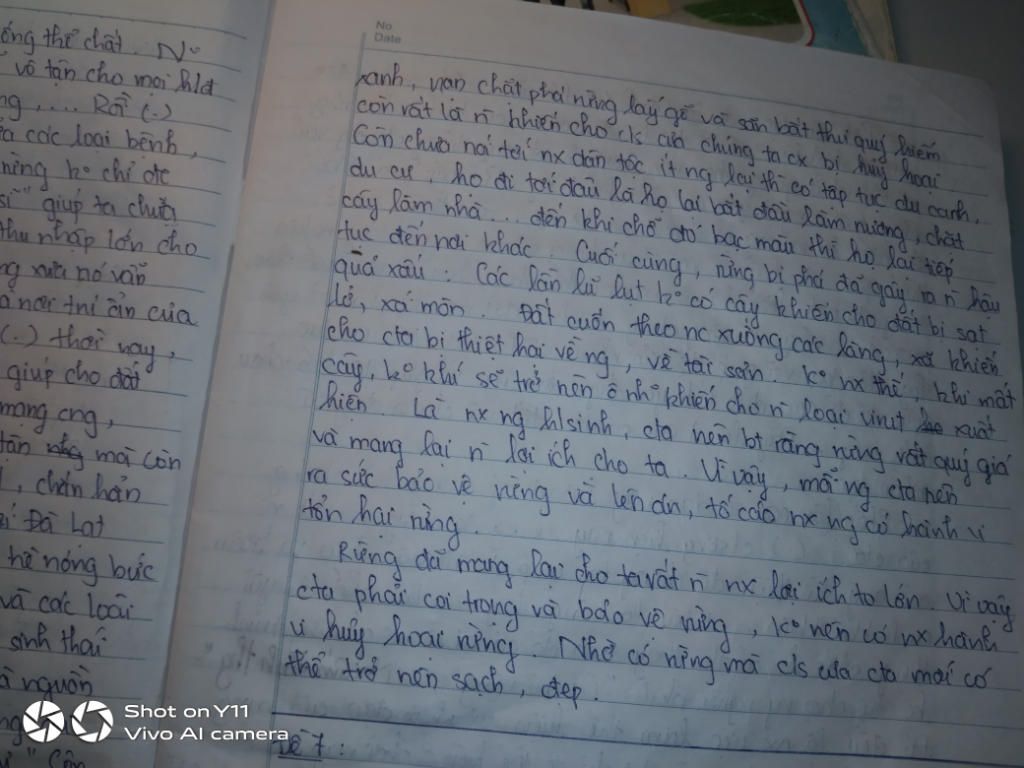 ống thể chất. N°
vô tận cho mọi hlđ
ng, .... Rồi (.)
ủa các loại bệnh,
rừng k° chỉ đc
sĩ" giúp ta chữa
thu nhập lớn cho
ng xưa nó vẫn
à nơi trú ẩn của
(.) thời nay,
giúp cho đất
mạng cng,
tán mà còn
, chắn hẳn
Đà Lạt
hè nóng bức
và các loài
sinh thái
à nguồn
No
Date
xanh, nạn chặt phá rừng lấy gỗ và săn bắt thú quý hiếm
còn rất là n̄ khiến cho cls của chúng ta cx bị hủy hoại.
Còn chưa nói tới nx dân tộc ít ng lại thì có tập tục du canh,
du cư, họ đi tới đâu là họ lại bắt đầu làm nương, chặt
cây làm nhà... đến khi chỗ đó bạc màu thì họ lại tiếp
tục đến nơi khác. Cuối cùng, rừng bị phá đã gây ra n̄ hậu
quả xấu: Các lần lũ lụt k° có cây khiến cho đất bị sạt
lở, xói mòn. Đất cuốn theo nc xuống các làng, khiến
cho cta bị thiệt hại về ng, về tài sản. K° nx thế, khi mất
cây, k° khí sẽ trở nên ô nh° khiến cho n̄ loại virut xuất
hiện. Là nx ng hlsinh, cta nên bt rằng rừng rất quý giá
và mang lại n̄ lợi ích cho ta. Vì vậy, mỗi ng cta nên
ra sức bảo vệ rừng và lên án, tố cáo nx ng có hành vi
tổn hại rừng.
Riêng đã mang lại cho ta rất n̄ nx lợi ích to lớn. Vì vậy
cta phải coi trọng và bảo vệ rừng, k° nên có nx hành
vi hủy hoại rừng. Nhờ có rừng mà cls của cta mới có
thể trở nên sạch, đẹp.
Đề 7:
Shot on Y11
Vivo AI camera